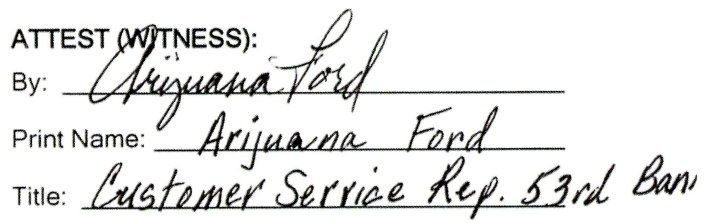 ATTEST (WITNESS):
By: Arijuana Ford
Print Name: Arijuana Ford
Title: Customer Service Rep. 53rd Ban